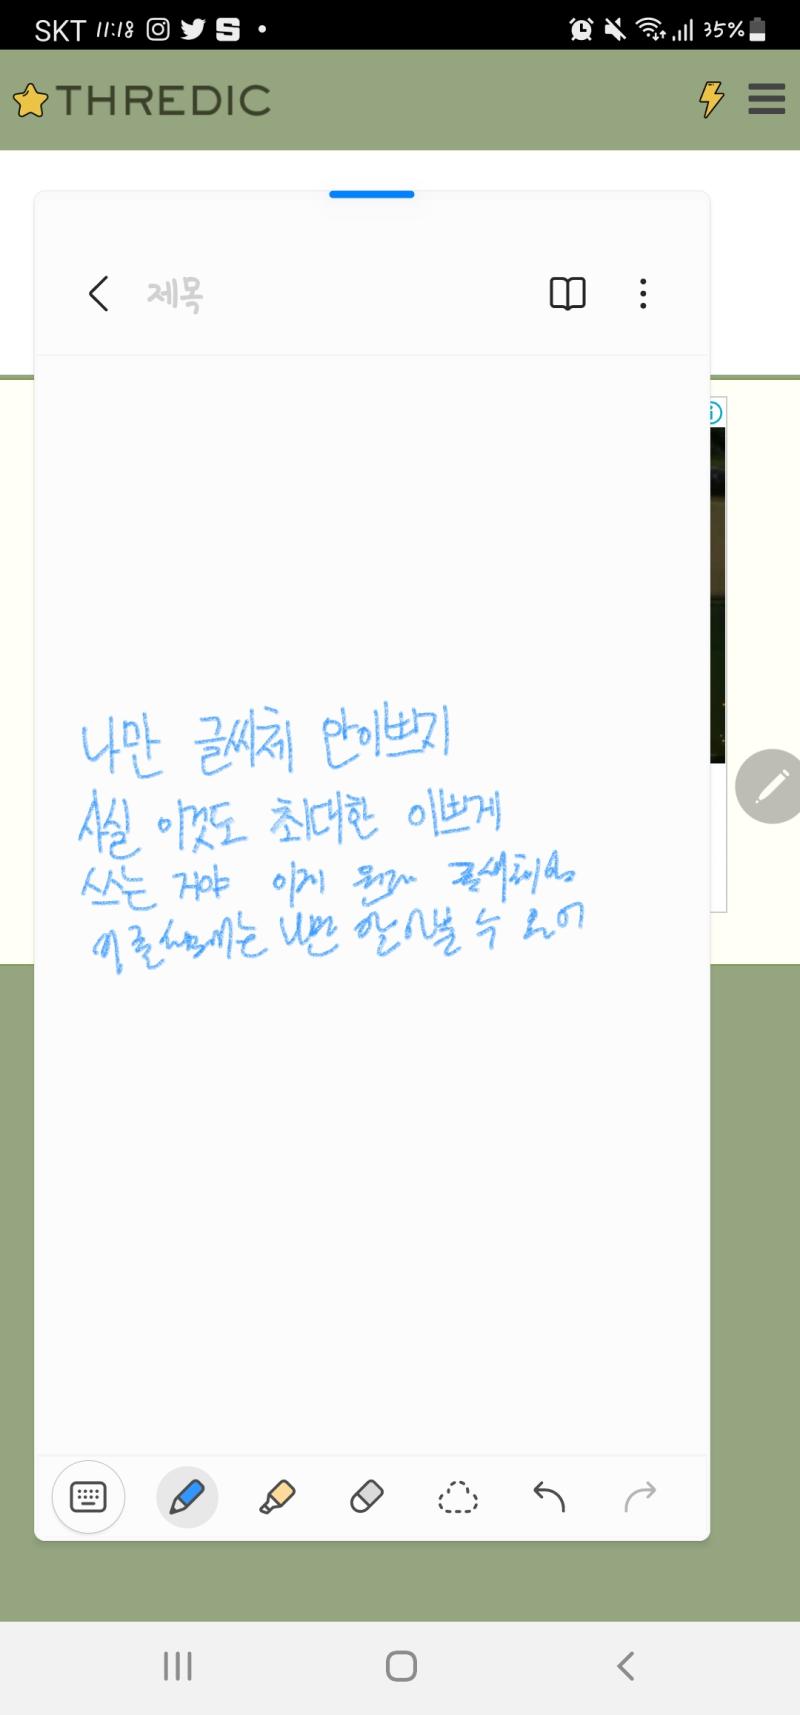 SKT 11:18 35%
THREDIC
제목
나만 글씨체 안이쁘지
사실 이것도 최대한 이쁘게
쓰는 거야 이게 원래 글씨체임
이 글씨체는 나만 알아볼 수 있어